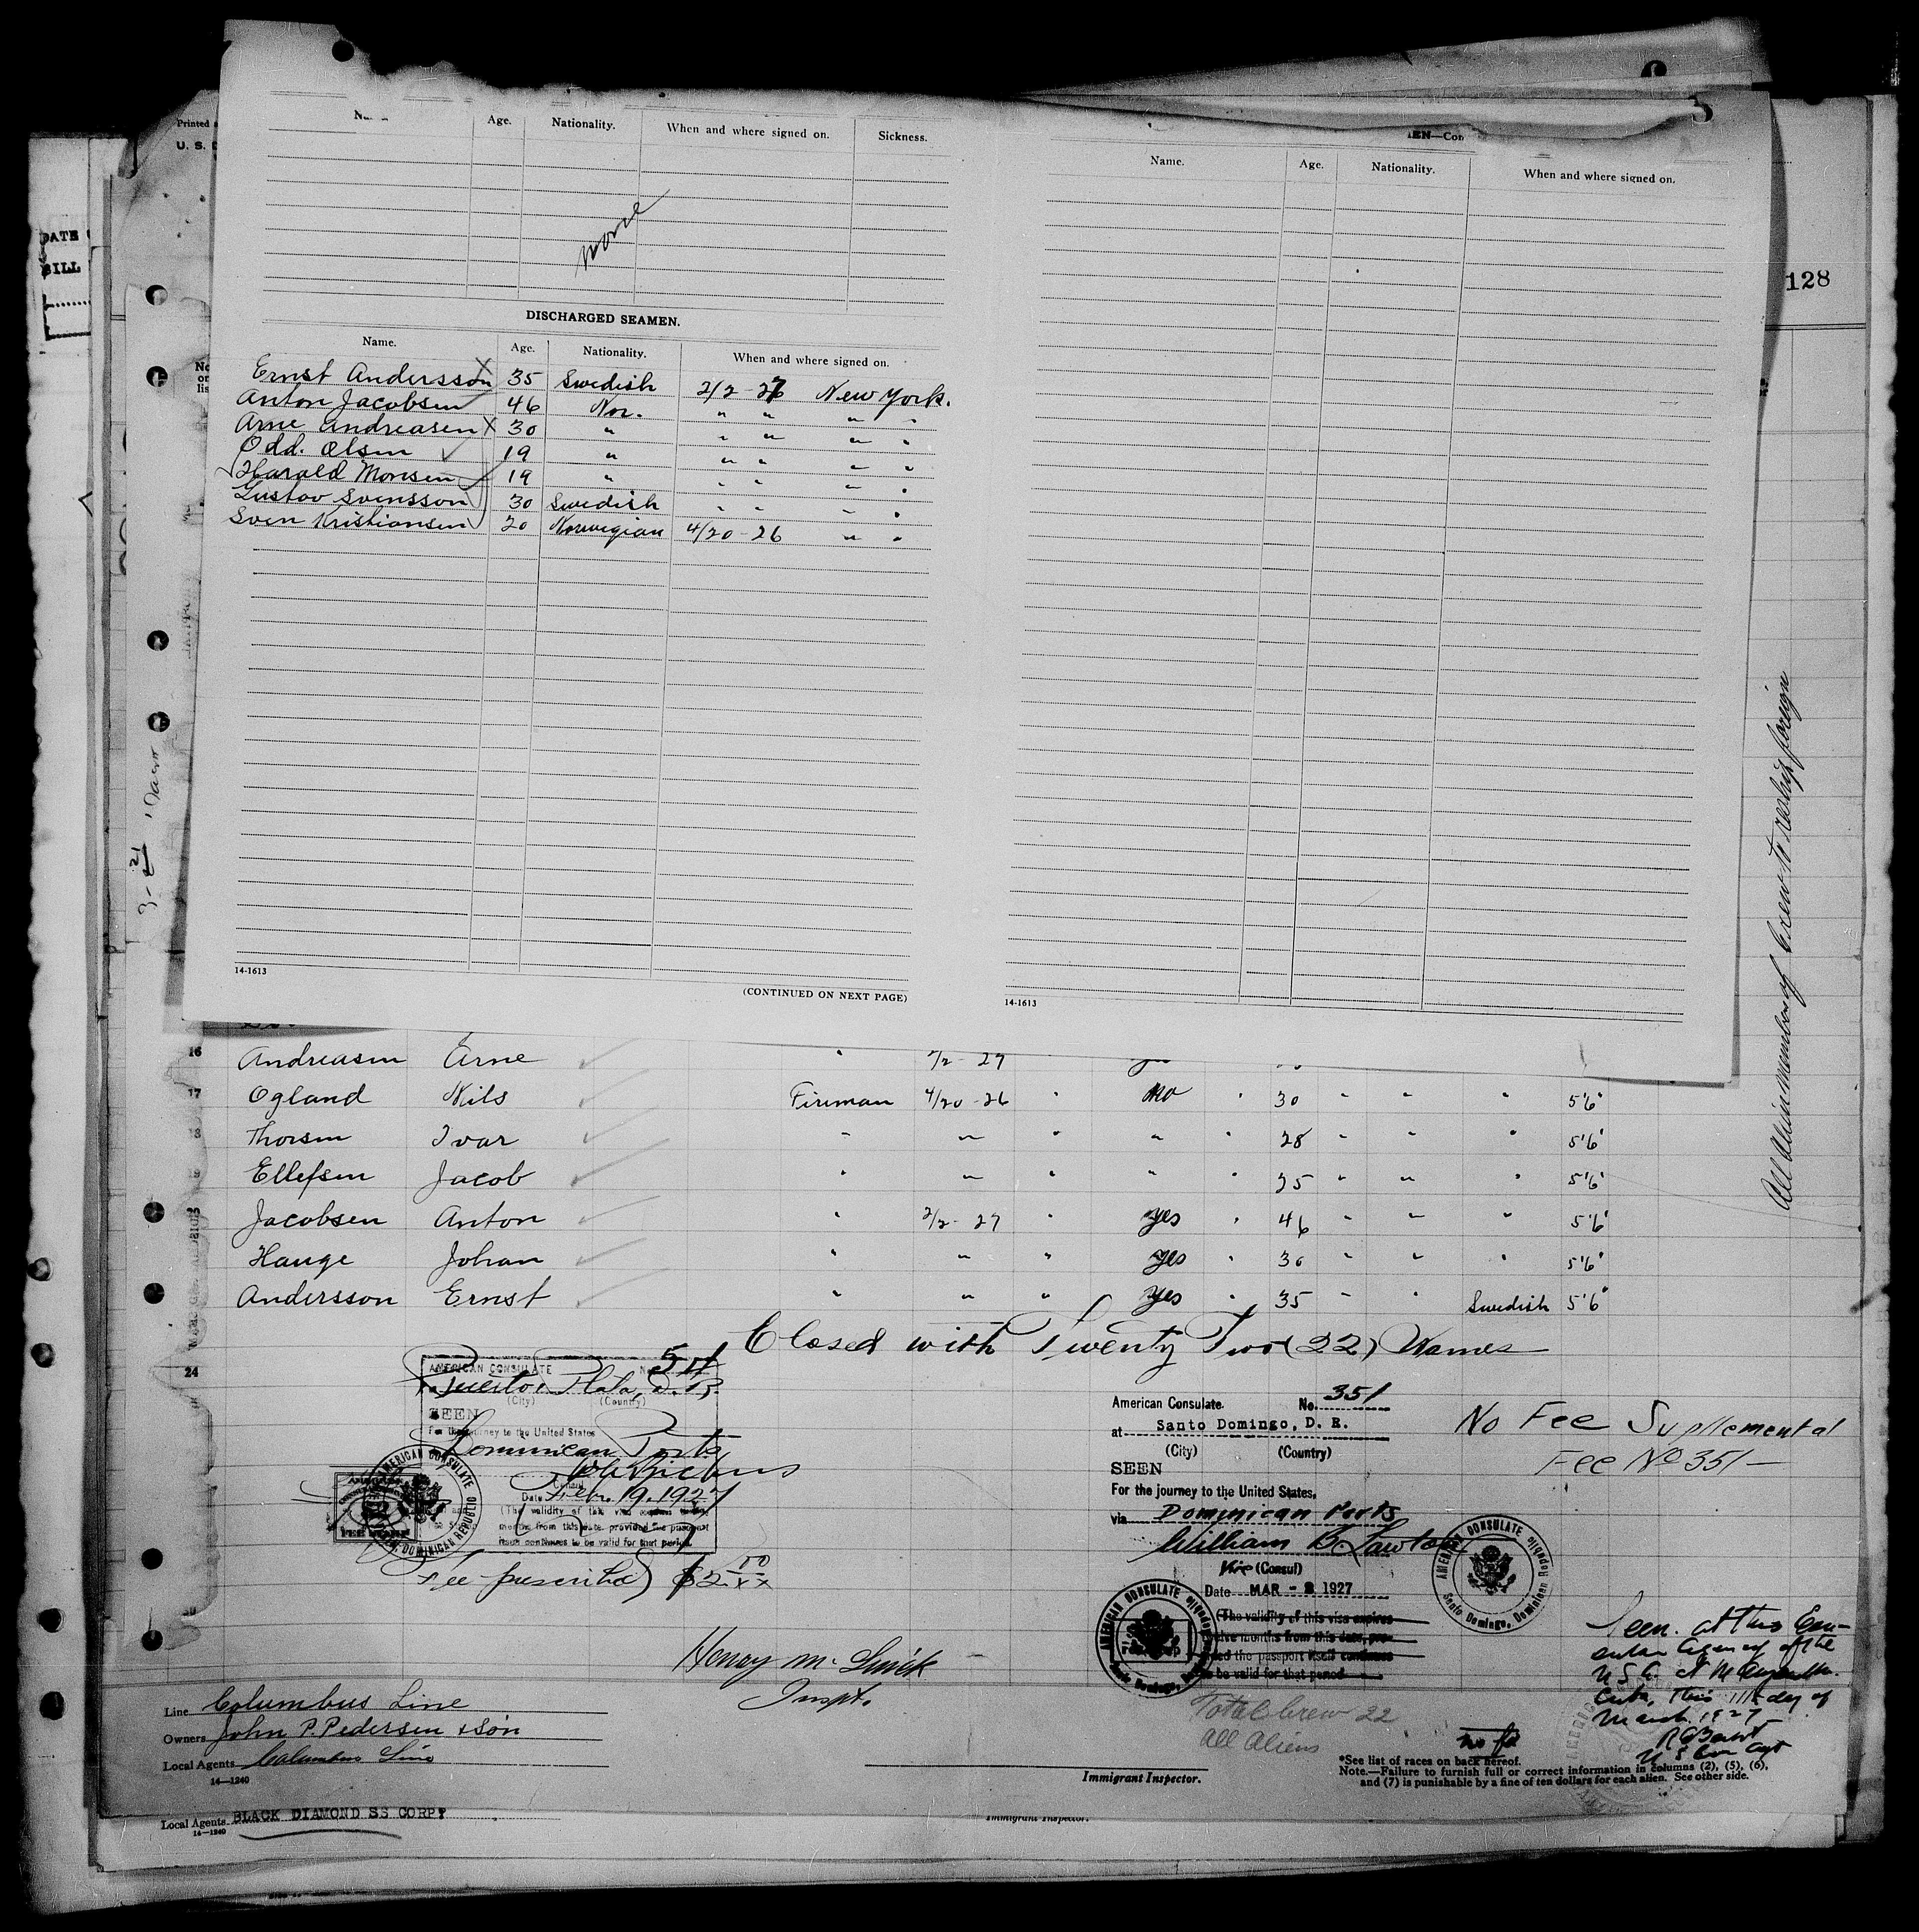 Printed
U. S. D
DATE
BILL
128
Age. Nationality. When and where signed on. Sickness.
none
DISCHARGED SEAMEN.
Name. Age. Nationality. When and where signed on.
Ernst Andersson X 35 Swedish 2/2-27 New York.
Anton Jacobsen 46 Nor. " " " "
Arne Andreasen X 30 " " " " "
Odd. Olsen 19 " " " " "
Harald Monsen 19 " " " " "
Gustav Svensson 30 Swedish " " " "
Sven Kristiansen 20 Norwegian 4/20-26 " "
14-1613
(CONTINUED ON NEXT PAGE)
EN—Con
Name. Age. Nationality. When and where signed on.
14-1613
All alien members of crew to reship foreign
16 Andreasen Arne " 2/2-27
17 Ogland Nils Fireman 4/20-26 " no " 30 " " " 5'6"
Thorsen Ivar " " " " " 28 " " " 5'6"
Ellefsen Jacob " " " " " 25 " " " 5'6"
Jacobsen Anton " 2/2-27 " yes " 46 " " " 5'6"
Hauge Johan " " " yes " 30 " " " 5'6"
Andersson Ernst " " " yes " 35 " " Swedish 5'6"
Closed with Twenty Two (22) Names
24
AMERICAN CONSULATE
Puerto Plata, D.R.
(City) (Country)
SEEN
For the journey to the United States
Dominican Ports
Date Febr. 19. 1927
(The validity of this visa expires
months from this date, provided the passport
itself continues to be valid for that period.
AMERICAN CONSULATE
DOMINICAN REPUBLIC
Fee prescribed $2.00
American Consulate. No. 351
at Santo Domingo, D. R.
(City) (Country)
SEEN
For the journey to the United States,
via Dominican Ports
William B. Lawton
Vice (Consul)
Date MAR - 2 1927
(The validity of this visa expires
twelve months from this date, pro-
vided the passport itself continues
to be valid for that period
AMERICAN CONSULATE
Santo Domingo, Dominican Republic
No Fee Supplemental
Fee No 351—
Henry M. Quick
Inspt.
Total crew 22
all aliens
no fee
Seen at this Con-
sular Agency of the
U S A at Manzanillo
Cuba, this 11th day of
March 1927
U S Con Agt
Line Columbus Line
Owners John P. Pedersen & Són
Local Agents Columbus Line
14—1240
Immigrant Inspector.
*See list of races on back hereof.
Note.—Failure to furnish full or correct information in columns (2), (5), (6),
and (7) is punishable by a fine of ten dollars for each alien. See other side.
Local Agents BLACK DIAMOND SS CORP.
14—1240
Immigrant Inspector.